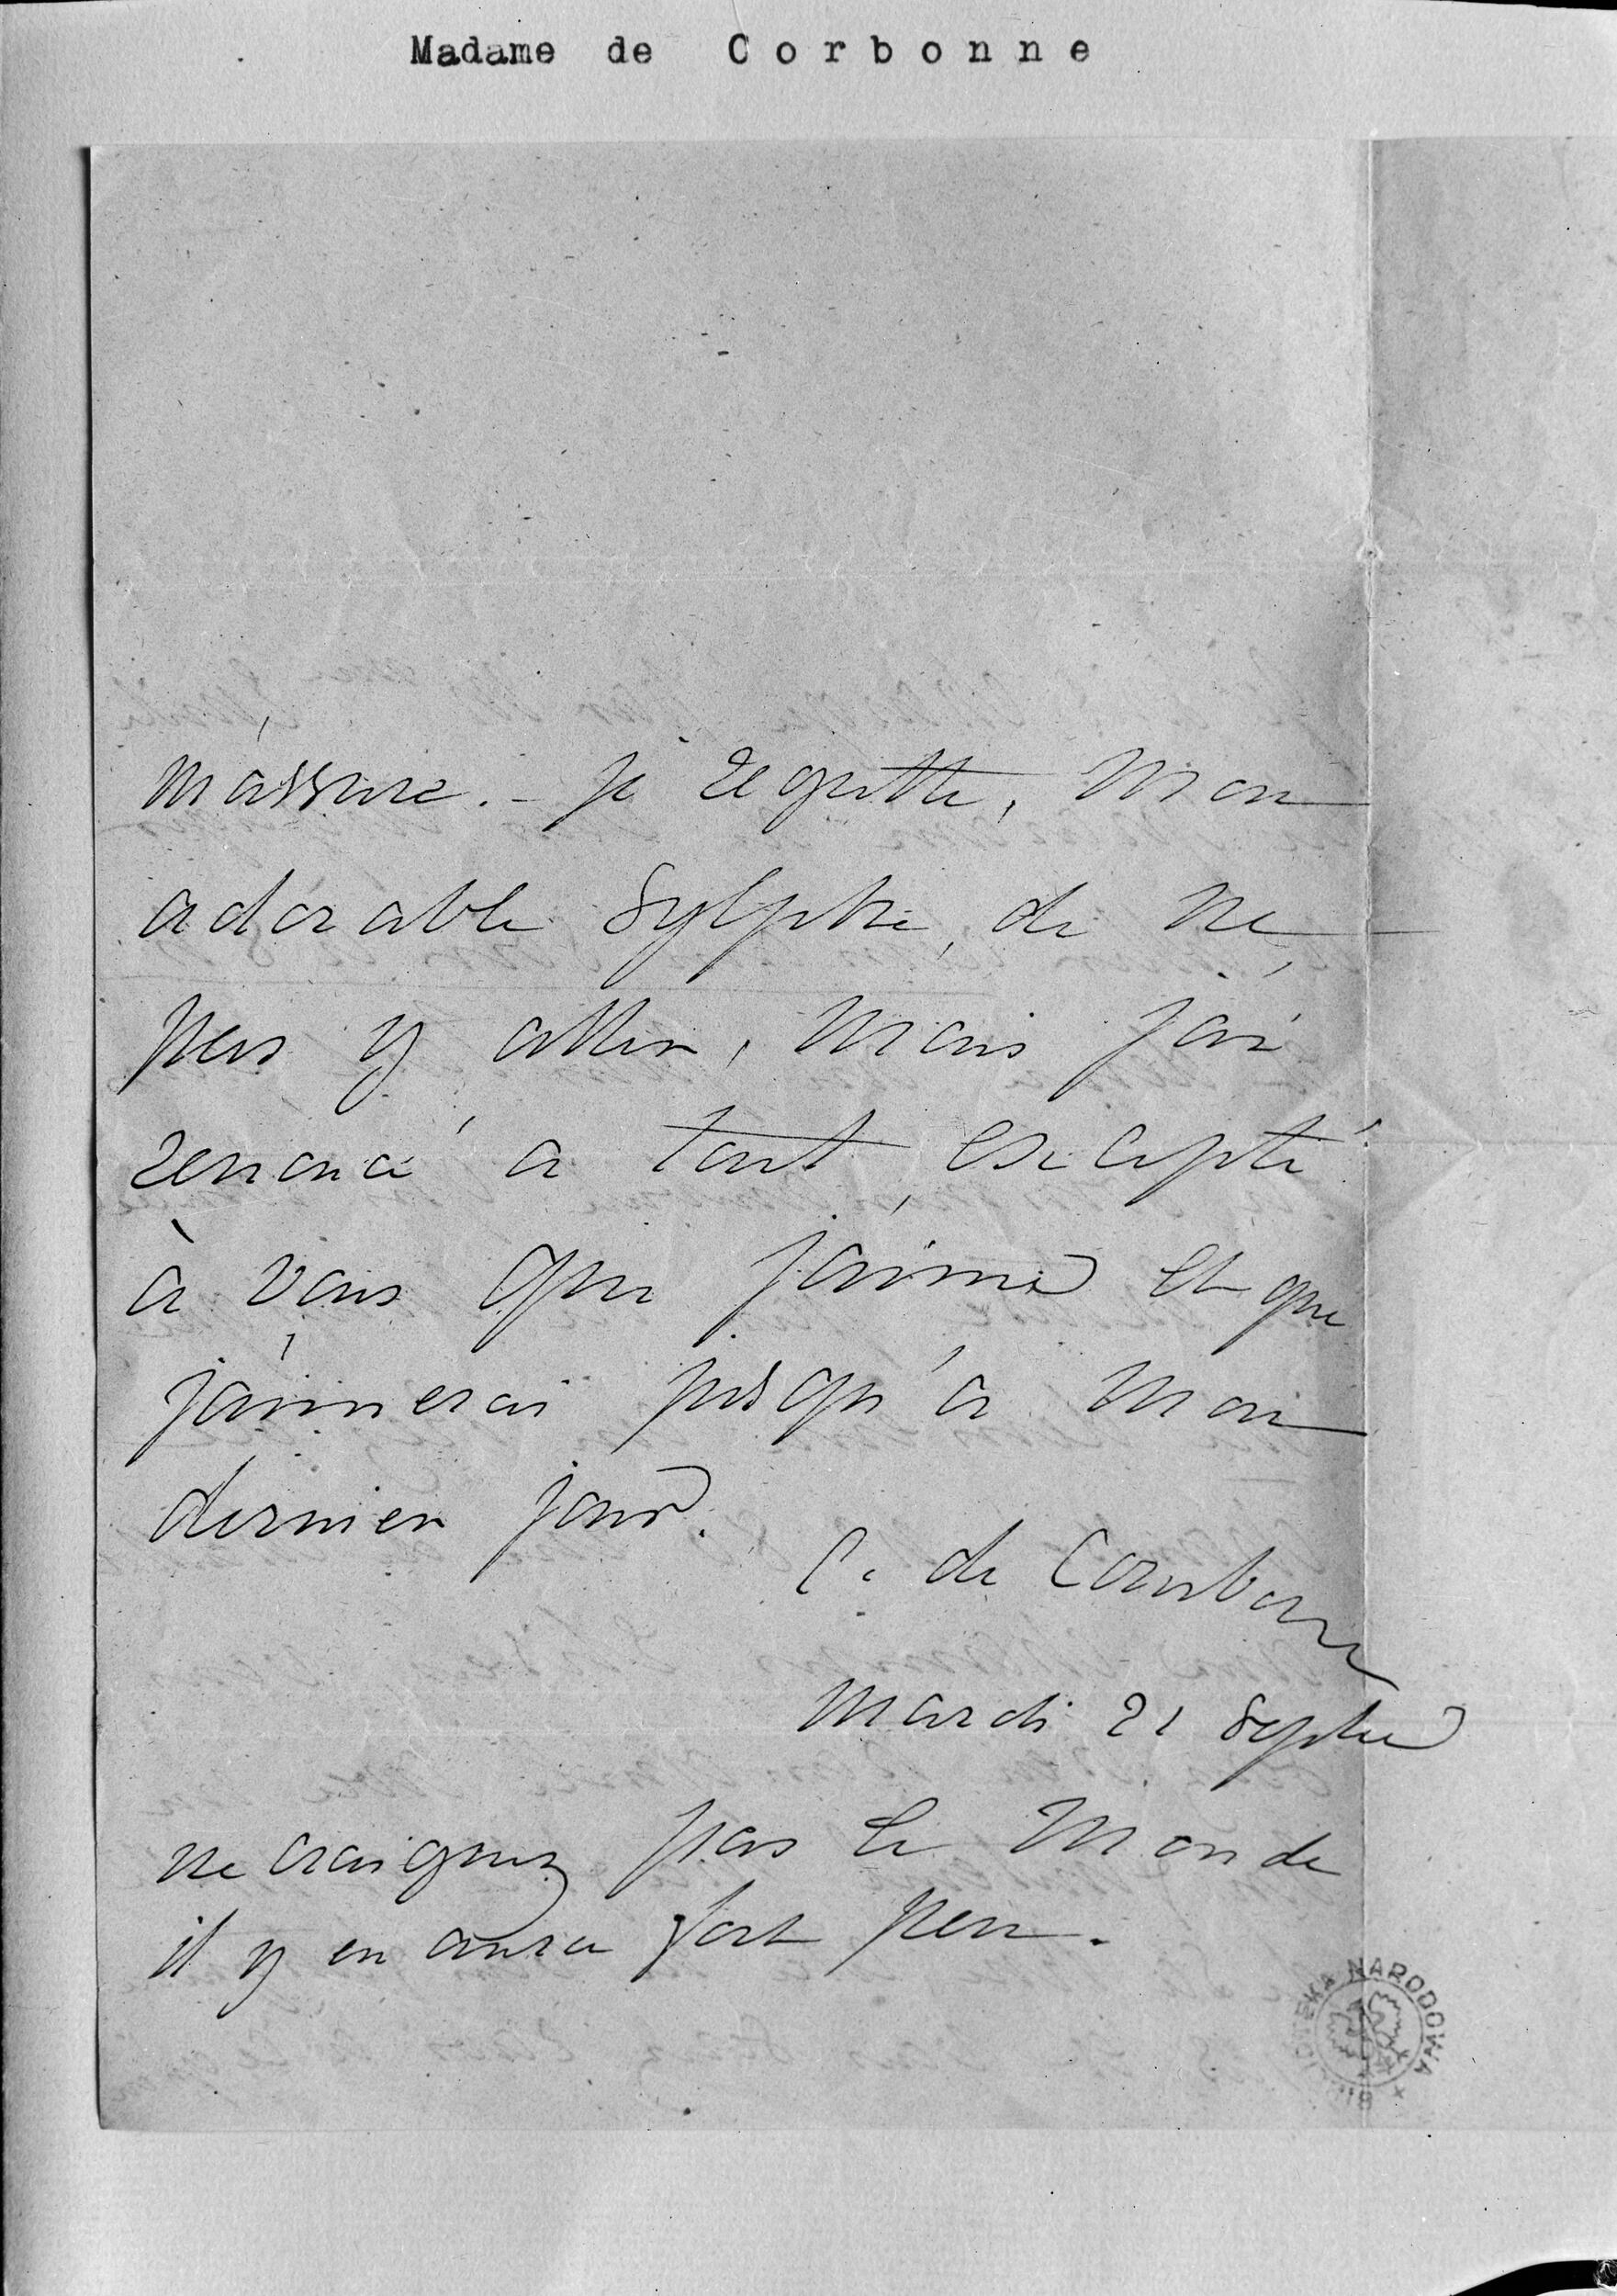 Madame de Corbonne
m'assure. – je regrette, mon
adorable sylphe, de ne
pas y aller, mais j'ai
renoncé a tout, excepté
à vous que j'aime et que
j'aimerai jusqu'à mon
dernier jour.
C. de Courbonne
mardi 21 septbre
ne craignez pas le monde
il y en aura fort peu.
BIBLIOTEKA NARODOWA